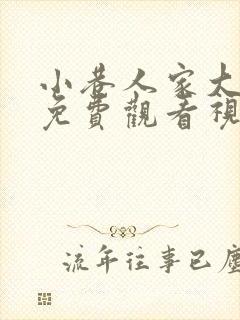 小巷人家大
免費觀看視
流年往事已塵